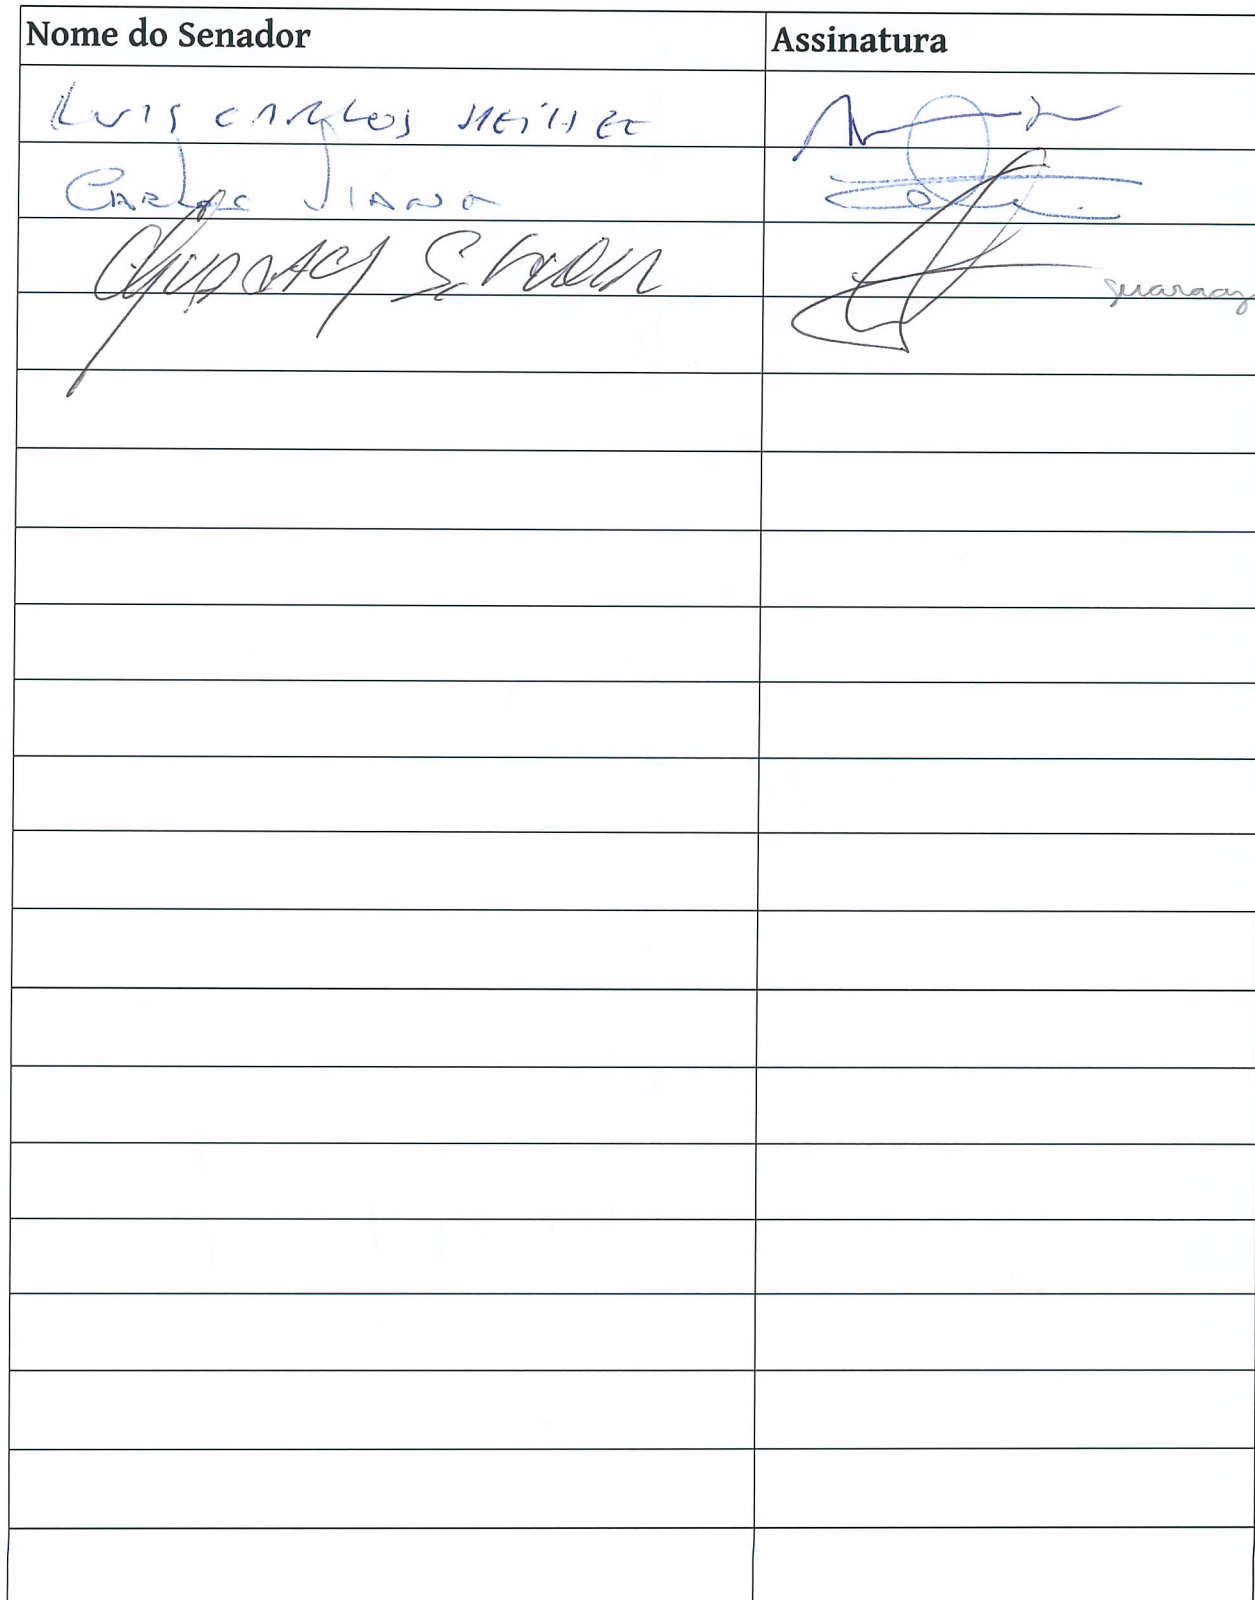 Nome do Senador Assinatura
LUIS CARLOS HEINZE
CARLOS VIANA
GUARACY SILVEIRA
guaracy